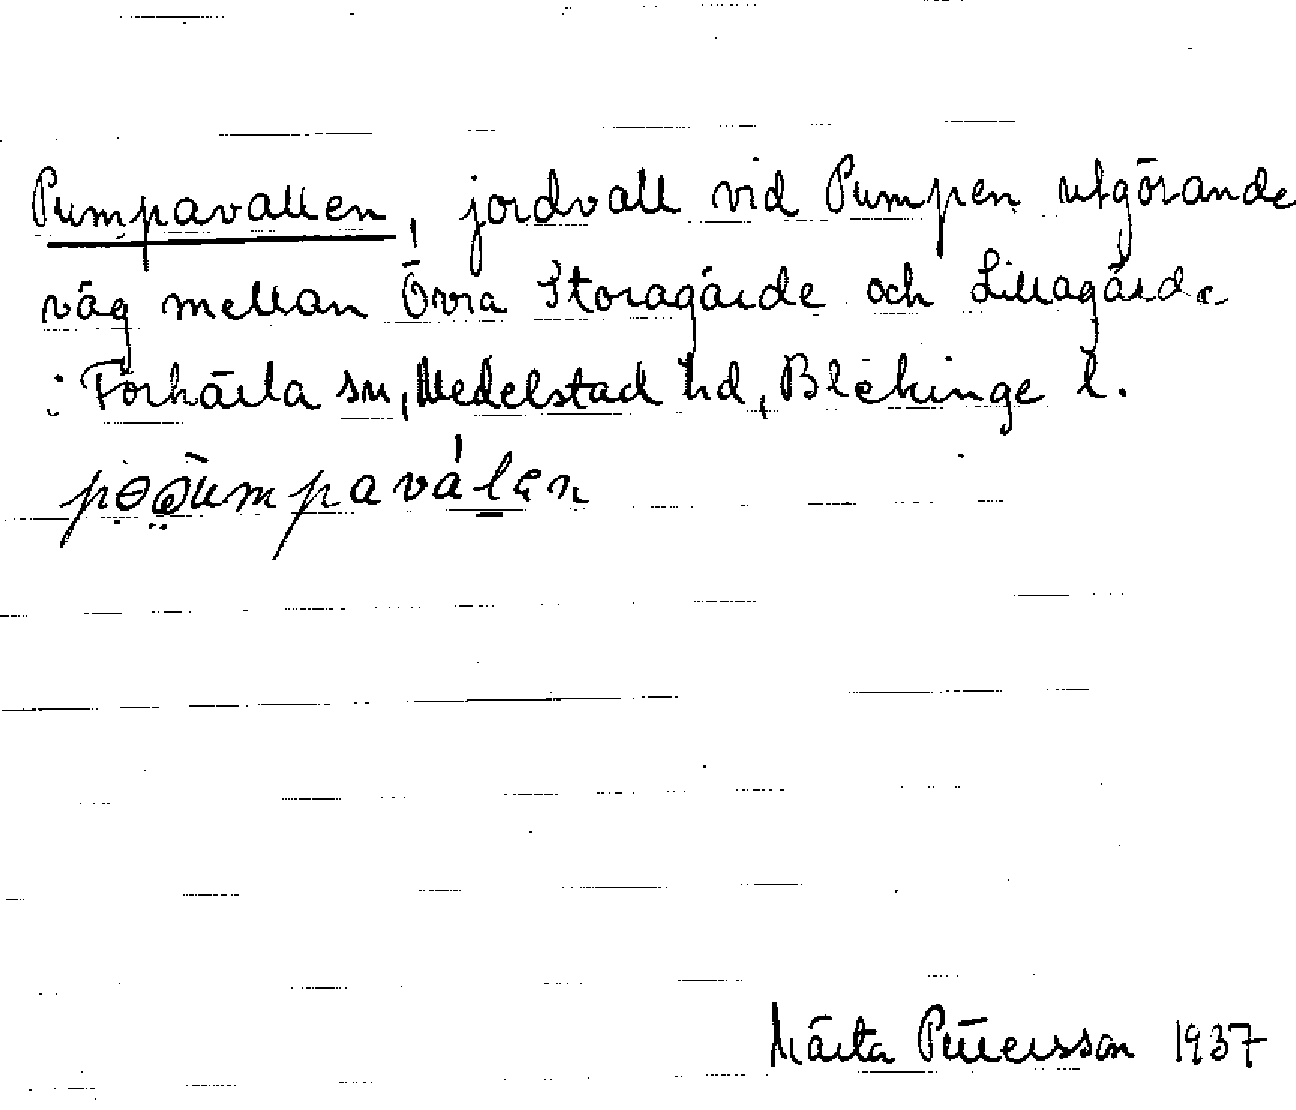 Pumpavallen, jordvall vid Pumpen utgörande
väg mellan Övra Storagärde och Lillagärde
i Förkärla sn, Medelstad hd, Blekinge l.
Märta Pettersson 1937